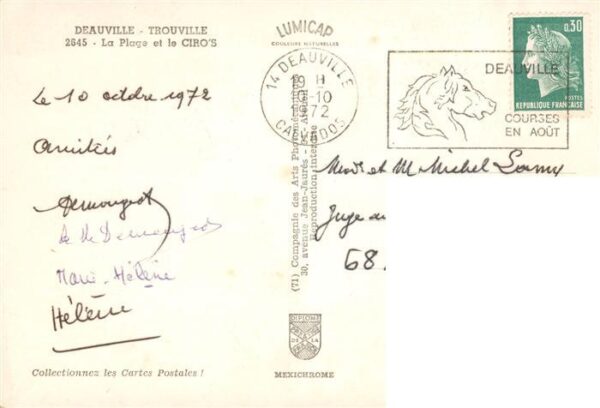 DEAUVILLE - TROUVILLE
2645 - La Plage et le CIRO'S
LUMICAP
COULEURS NATURELLES
14 DEAUVILLE
19 H
10-10
1972
CALVADOS
DEAUVILLE
COURSES
EN AOÛT
0,30
POSTES
REPUBLIQUE FRANÇAISE
Le 10 octobre 1972
Amitiés
Demougeot
Demougeot
Marie-Hélène
Hélène
Collectionnez les Cartes Postales !
(71) Compagnie des Arts Photomécaniques
30, avenue Jean-Jaurès
Reproduction interdite
DIPLOME
MEXICHROME
Mad. et M. Michel Lamy
Juge au
68.